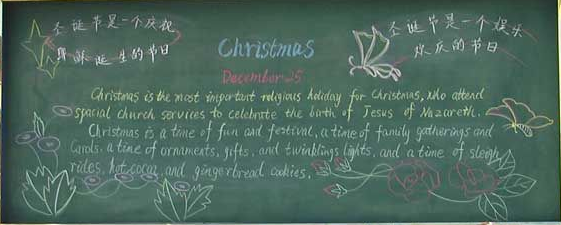 圣诞节是一个庆祝
耶稣诞生的节日
圣诞节是一个娱乐
欢庆的节日
Christmas
December 25
Christmas is the most important religious holiday for Christmas, who attend
spacial church services to celebrate the birth of Jesus of Nazareth.
Christmas is a time of fun and festival, a time of family gatherings and
Carols. a time of ornaments, gifts, and twinblings lights, and a time of sleigh
rides, hot cocoa, and gingerbread cookies.